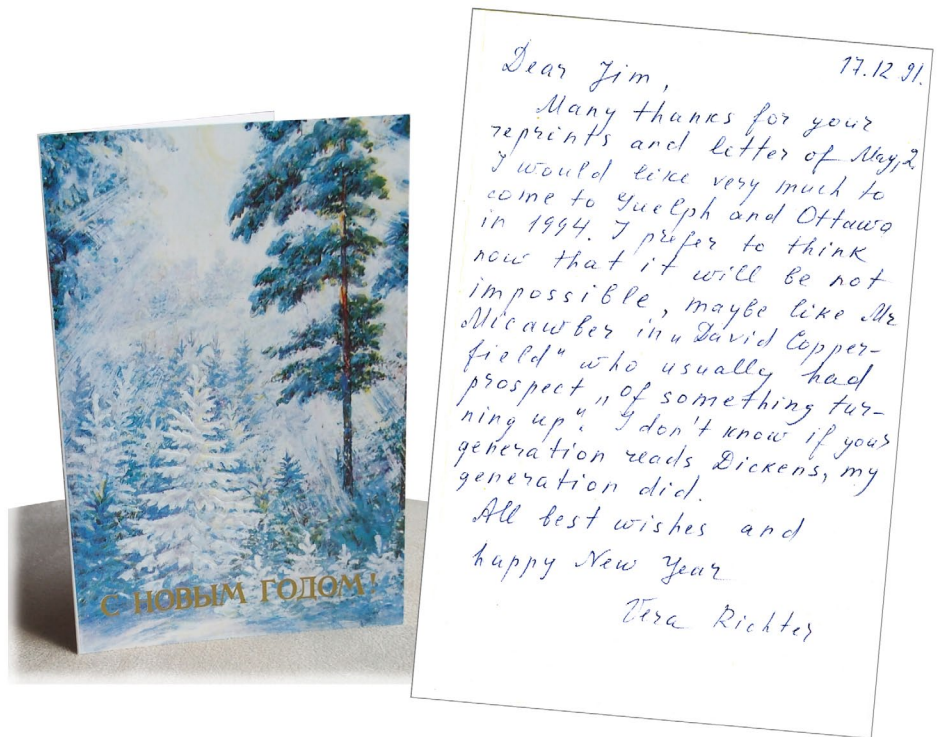 С НОВЫМ ГОДОМ!
17.12 91.
Dear Jim,
Many thanks for your
reprints and letter of May, 2.
I would like very much to
come to Guelph and Ottawa
in 1994. I prefer to think
now that it will be not
impossible, maybe like Mr
Micawber in „David Copper-
field" who usually had
prospect „of something tur-
ning up". I don't know if your
generation reads Dickens, my
generation did.
All best wishes and
happy New Year
Vera Richter